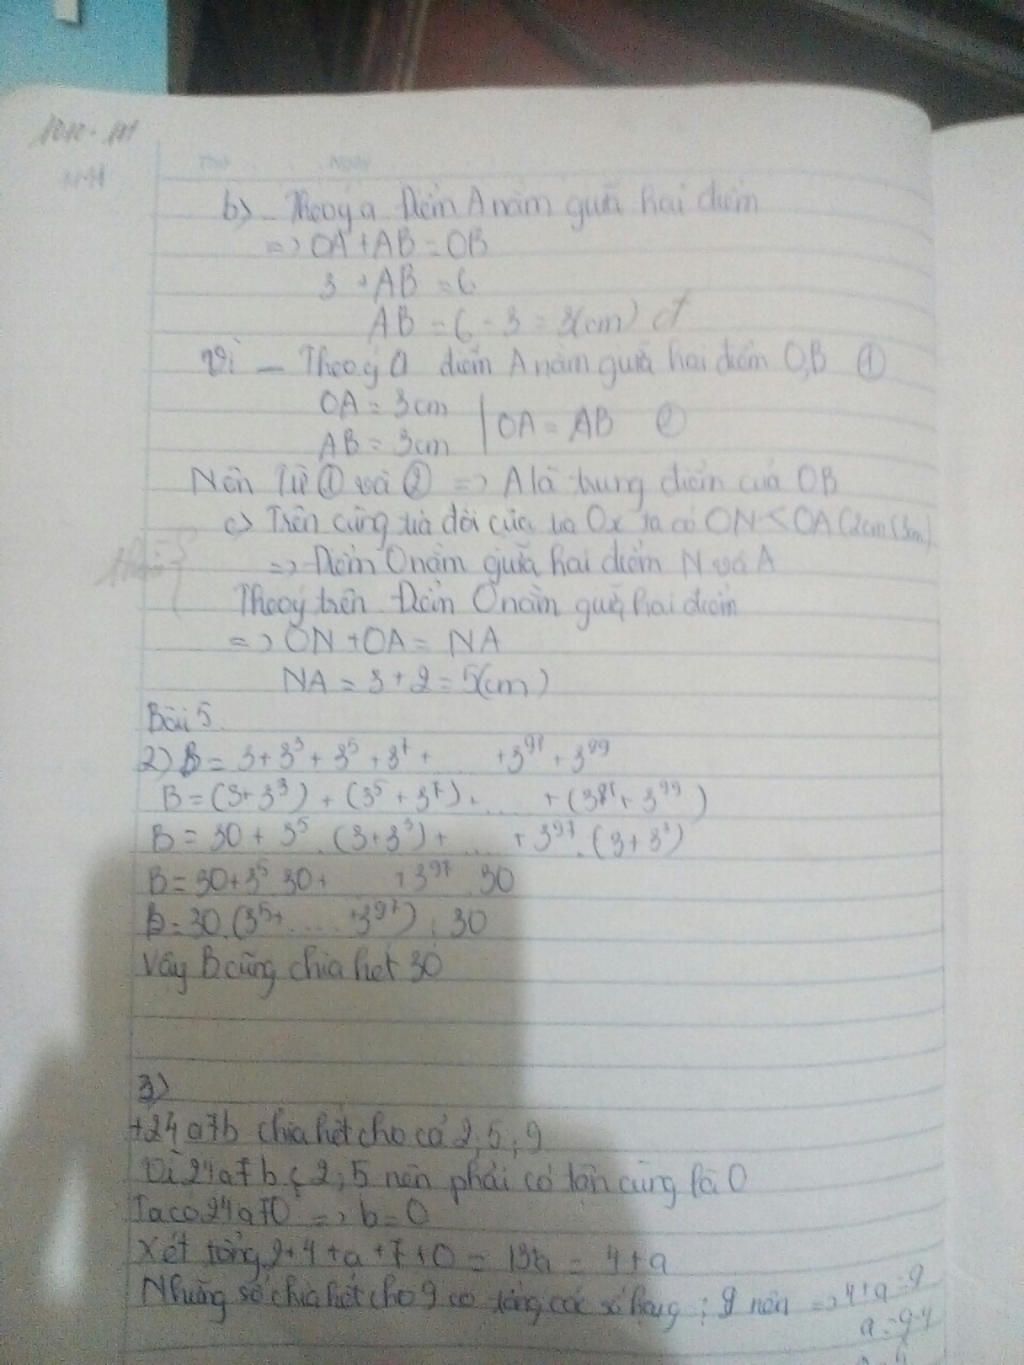 b) - Theo ý a Điểm A nằm giữa hai điểm
=> OA + AB = OB
3 + AB = 6
AB = 6 - 3 = 3(cm)
Vì - Theo ý a điểm A nằm giữa hai điểm O,B ①
OA = 3cm
AB = 3cm | OA = AB ②
Nên Từ ① và ② => A là trung điểm của OB
c) Trên cùng tia đối của tia Ox ta có ON < OA (2cm < 3cm)
=> Điểm O nằm giữa hai điểm N và A
Theo ý trên Điểm O nằm giữa hai điểm
=> ON + OA = NA
NA = 3 + 2 = 5(cm)
Bài 5
2) B = 3 + 3³ + 3⁵ + 3⁷ + +3⁹⁷ + 3⁹⁹
B = (3 + 3³) + (3⁵ + 3⁷) + .... + (3⁹⁷ + 3⁹⁹)
B = 30 + 3⁵ . (3 + 3³) + .... + 3⁹⁷ . (3 + 3³)
B = 30 + 3⁵ 30 + + 3⁹⁷ 30
B = 30 . (3⁵ + ..... + 3⁹⁷) ⋮ 30
Vậy B cũng chia hết 30
3)
+ 24a7b chia hết cho cả 2, 5, 9
Vì 24a7b ⋮ 2, 5 nên phải có tận cùng là 0
Ta có 24a70 => b = 0
Xét tổng 2 + 4 + a + 7 + 0 = 13a = 4 + a
Những số chia hết cho 9 có tổng các số hạng ⋮ 9 nên => 4 + a = 9
a = 9 - 4